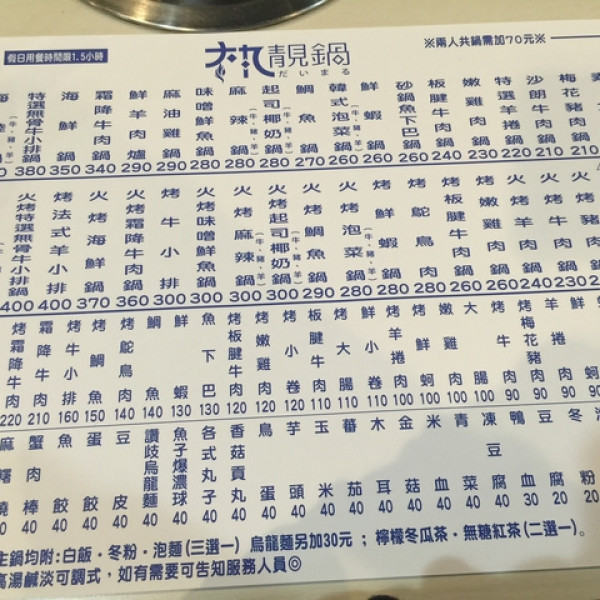 假日用餐時間限1.5小時
大丸靚鍋
だいまる
※兩人共鍋需加70元※
特選無骨牛小排鍋 380
海鮮鍋 350
霜降牛肉鍋 340
鮮羊肉爐 290
麻油雞鍋 290
味噌鮮魚鍋 280
麻辣鍋(牛、豬、羊) 280
起司椰奶鍋(牛、豬、羊) 280
鯛魚鍋 270
韓式泡菜鍋(牛、豬、羊) 260
鮮蝦鍋 260
砂鍋魚下巴 260
板腱牛肉鍋 240
嫩雞鍋 230
特選羊捲鍋 220
沙朗牛肉鍋 210
梅花豬肉鍋 210
火烤特選無骨牛小排鍋 400
烤法式羊排鍋 400
火烤海鮮鍋 370
火烤霜降牛肉鍋 360
烤牛小排 300
火烤味噌鮮魚鍋 300
火烤麻辣鍋(牛、豬、羊) 300
火烤起司椰奶鍋(牛、豬、羊) 300
火烤鯛魚鍋 290
火烤泡菜鍋(牛、豬、羊) 280
烤鮮蝦鍋 280
烤鴕鳥肉 280
烤板腱牛肉鍋 260
烤嫩雞肉鍋 250
火烤羊肉鍋 240
火烤牛肉鍋 230
烤霜降牛肉 220
霜降牛肉 210
烤牛小排 160
烤鯛魚 150
烤鴕鳥肉 140
鯛魚 140
鮮蝦 130
魚下巴 130
烤板腱牛肉 120
烤嫩雞肉 120
烤小卷 120
板腱牛肉 110
烤大腸 110
鮮小卷 110
烤羊捲肉 100
烤鮮蚵 100
嫩雞肉 100
大腸 100
烤牛肉 90
烤梅花豬肉 90
羊捲肉 90
鮮蚵 90
麻糬燒 40
蟹肉棒 40
魚餃 40
蛋餃 40
豆皮 40
讚歧烏龍麵 40
魚子爆濃球 40
各式丸子 40
香菇貢丸 40
鳥蛋 40
芋頭 40
玉米 40
番茄 40
木耳 40
金菇 40
米血 40
青菜 40
凍豆腐 40
鴨血 30
豆腐 20
冬粉 20
主鍋均附:白飯・冬粉・泡麵(三選一) 烏龍麵另加30元 ; 檸檬冬瓜茶・無糖紅茶(二選一)。
高湯鹹淡可調式，如有需要可告知服務人員◎